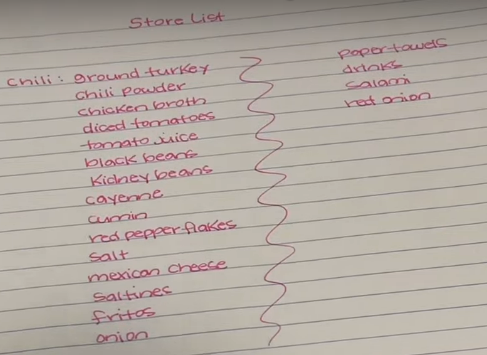 Store List
chili: ground turkey
chili powder
chicken broth
diced tomatoes
tomato juice
black beans
kidney beans
cayenne
cumin
red pepper flakes
salt
mexican cheese
saltines
fritos
onion
paper towels
drinks
salami
red onion